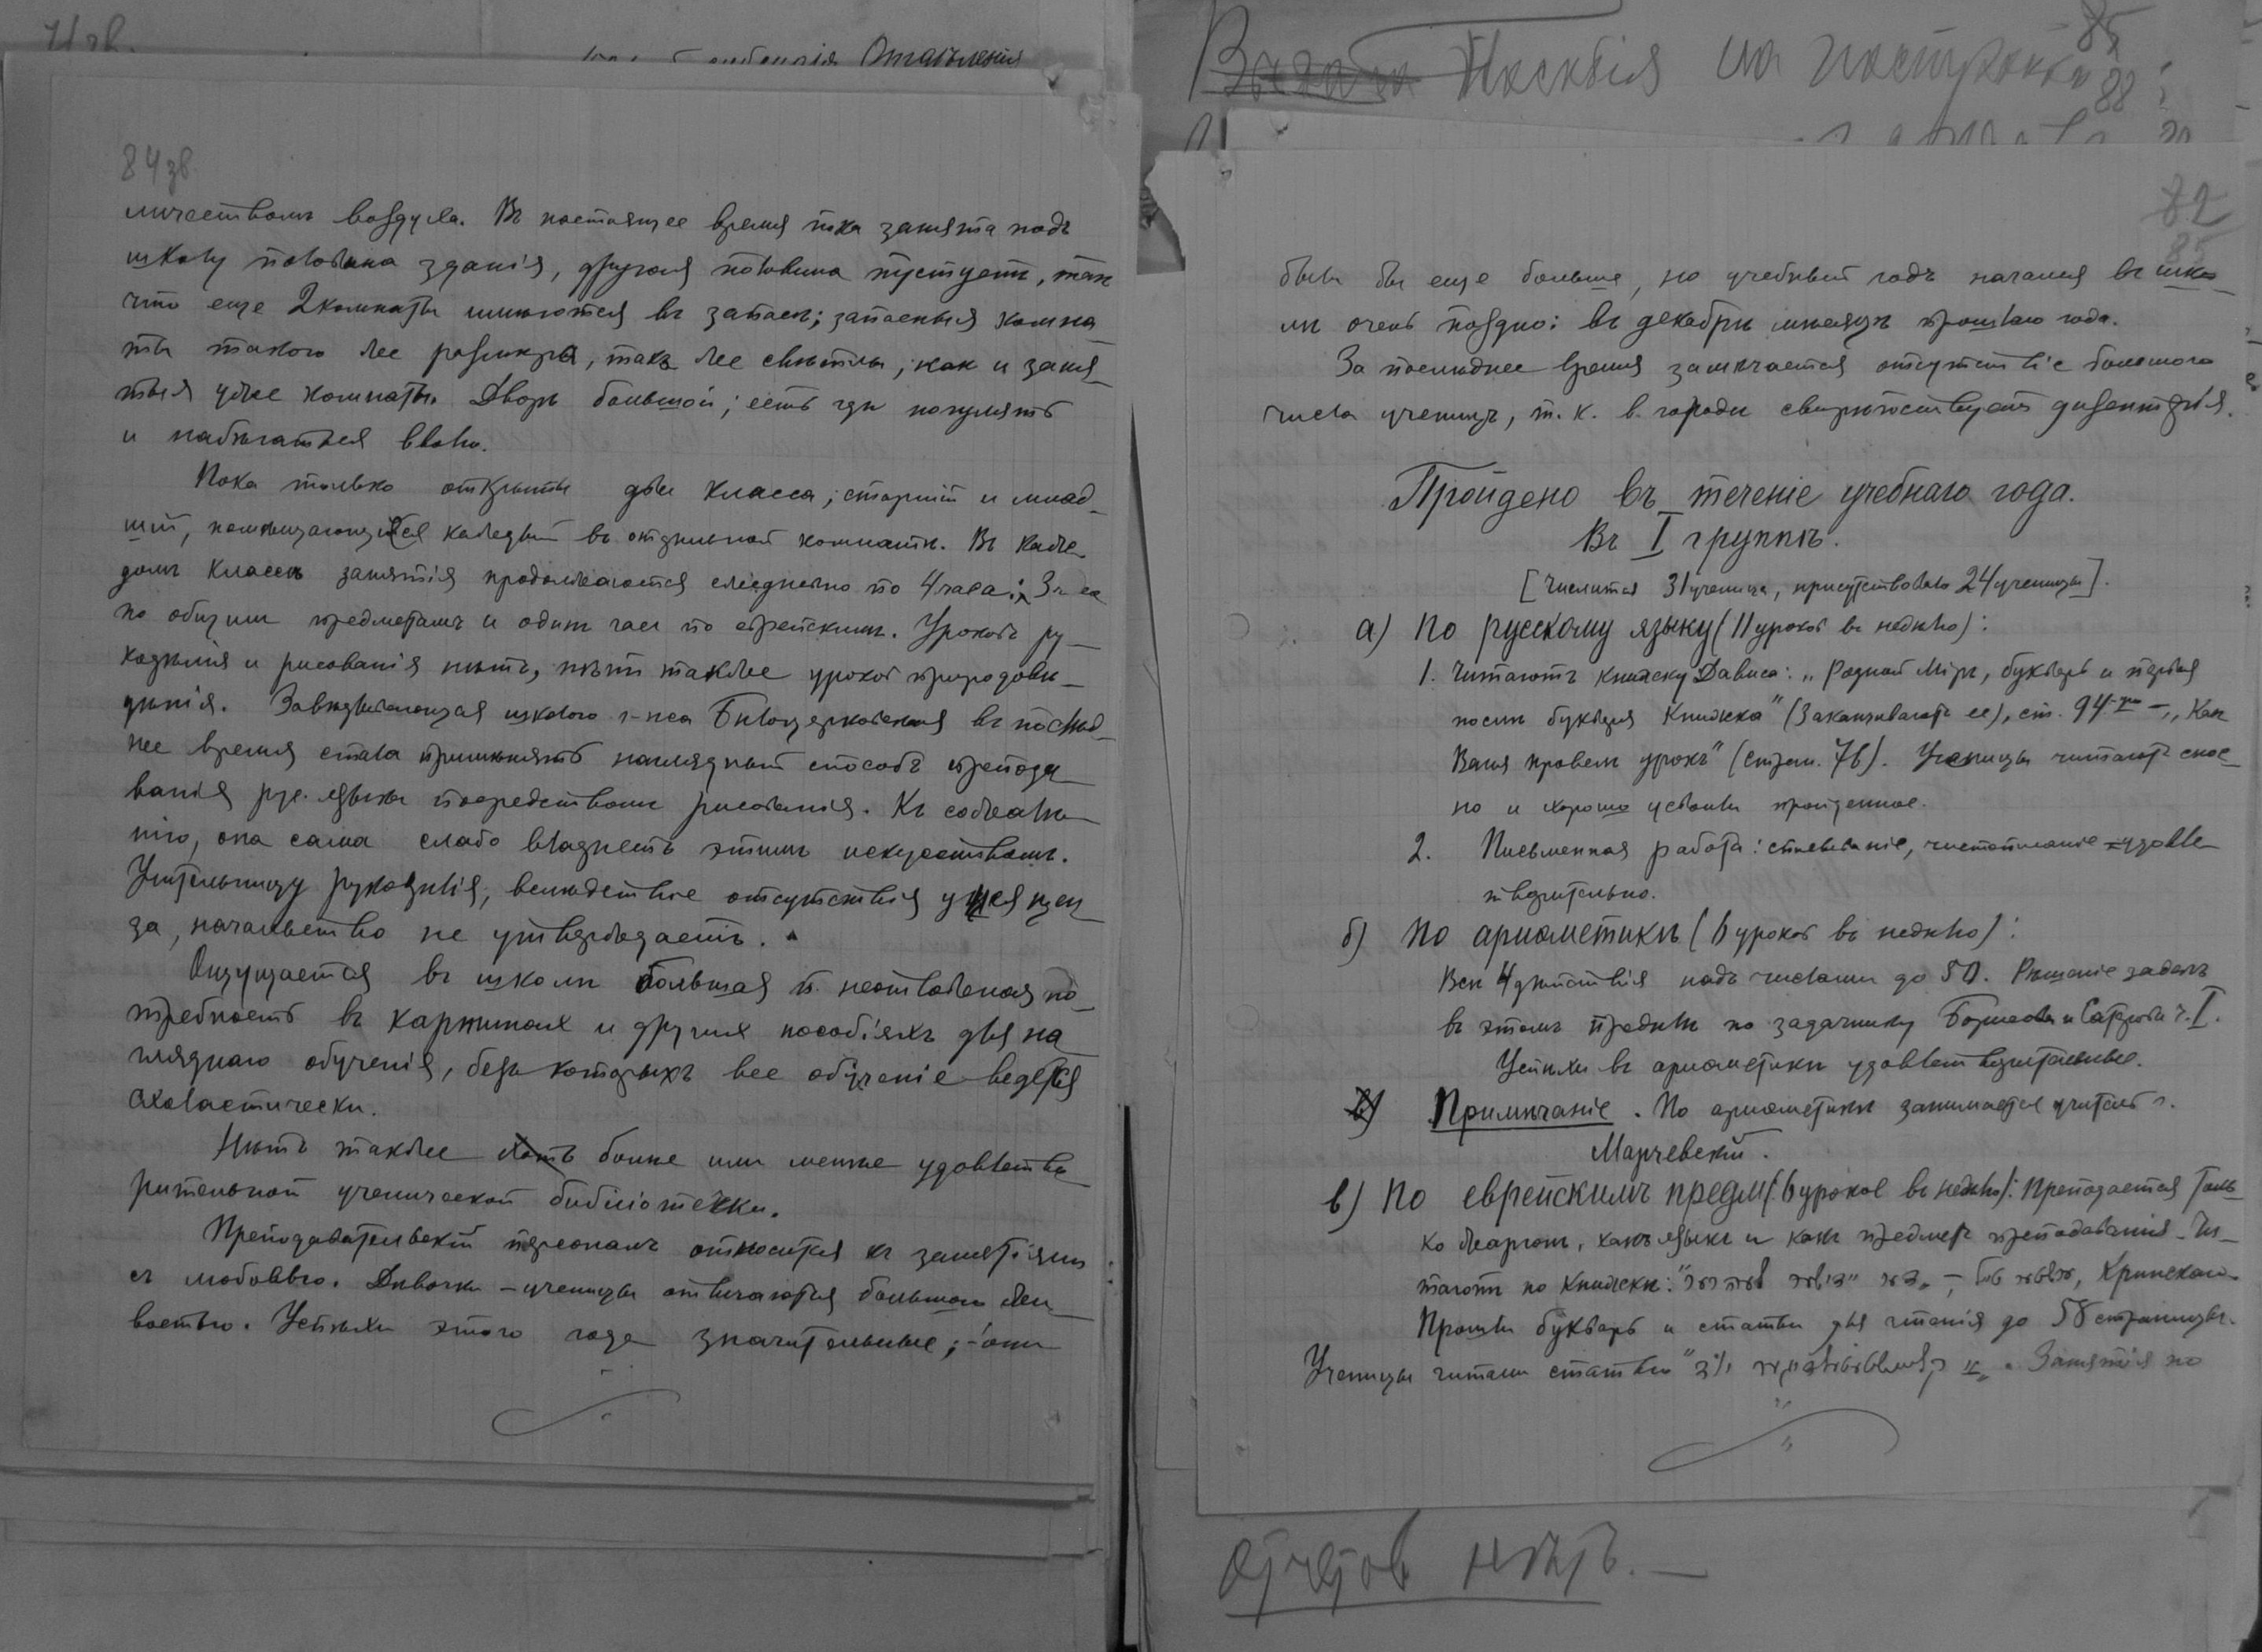 84 зв.
личествомъ воздуха. Въ настоящее время пока занята подъ
школу половина зданія, другая половина пустуетъ, такъ
что еще 2 комнаты имѣются въ запасѣ; запасныя комна
ты такого же размѣра, такъ же свѣтлы, какъ и заня_
тыя уже комнаты. Дворъ большой; есть гдѣ погулять
и набѣгаться вволю.
Пока только открыты два класса, старшій и млад_
шій, помѣщающійся каждый въ отдѣльной комнатѣ. Въ каж_
домъ классѣ занятія продолжаются ежедневно по 4 часа: 3 ча
по общимъ предметамъ и одинъ часъ по еврейскимъ. Уроковъ ру_
кодѣлія и рисованія нѣтъ, нѣтъ также уроковъ природовѣ_
дѣнія. Завѣдывающая школою г-жа Бѣлоцерковская въ послѣд_
нее время стала примѣнять наглядный способъ препода
ванія рус. языка посредствомъ рисованія. Къ сожалѣ_
нію, она сама слабо владѣетъ этимъ искусствомъ.
Учительницу рукодѣлія, вслѣдствіе отсутствія у нея цен_
за, начальство не утверждаетъ.
Ощущается въ школѣ большая и неотложная по_
требность въ картинахъ и другихъ пособіяхъ для на_
гляднаго обученія, безъ которыхъ все обученіе ведется
схоластически.
Нѣтъ также болѣе или менѣе удовлетво
рительной ученической библіотеки.
Преподавательскій персоналъ относится къ занятіямъ
съ любовью. Дѣвочки - ученицы отличаются большою жи_
востью. Успѣхи этого года значительные; - они
85
88
82
85
были бы еще больше, но учебный годъ начался въ шко_
лѣ очень поздно: въ декабрѣ мѣсяцѣ прошлаго года.
За послѣднее время замѣчается отсутствіе большого
числа ученицъ, т. к. в городѣ свирѣпствуетъ дизентерія.
Пройдено въ теченіе учебнаго года.
Въ I группѣ.
[Числится 31 ученица, присутствовало 24 ученицы].
а) По русскому языку (11 уроков въ недѣлю):
1. Читаютъ книжку Дависа: „Родной Міръ, букварь и первая
послѣ букваря книжка" (Заканчиваютъ ее), ст. 94-ую - „Какъ
Ваня провелъ урокъ" (стран. 76). Ученицы читаютъ снос_
но и хорошо усвоили пройденное.
2. Письменная работа: списываніе, чистописаніе - удовле_
творительно.
б) По ариѳметикѣ (6 уроков въ недѣлю):
Всѣ 4 дѣйствія надъ числами до 50. Рѣшеніе задачъ
въ этомъ предѣлѣ по задачнику ч. I.
Успѣхи въ ариѳметикѣ удовлетворительные.
Примѣчаніе. По ариѳметикѣ занимается учитель г.
Марчевскій.
в) По еврейскимъ предм. (6 уроков въ недѣлю): Преподается толь_
ко жаргонъ, какъ языкъ и какъ предметъ преподаванія. Чи_
таютъ по книжкѣ: Кринскаго.
Прошли букварь и статьи для чтенія до 58 страницы.
Ученицы читали статью Занятія по
отчетов нѣтъ. —